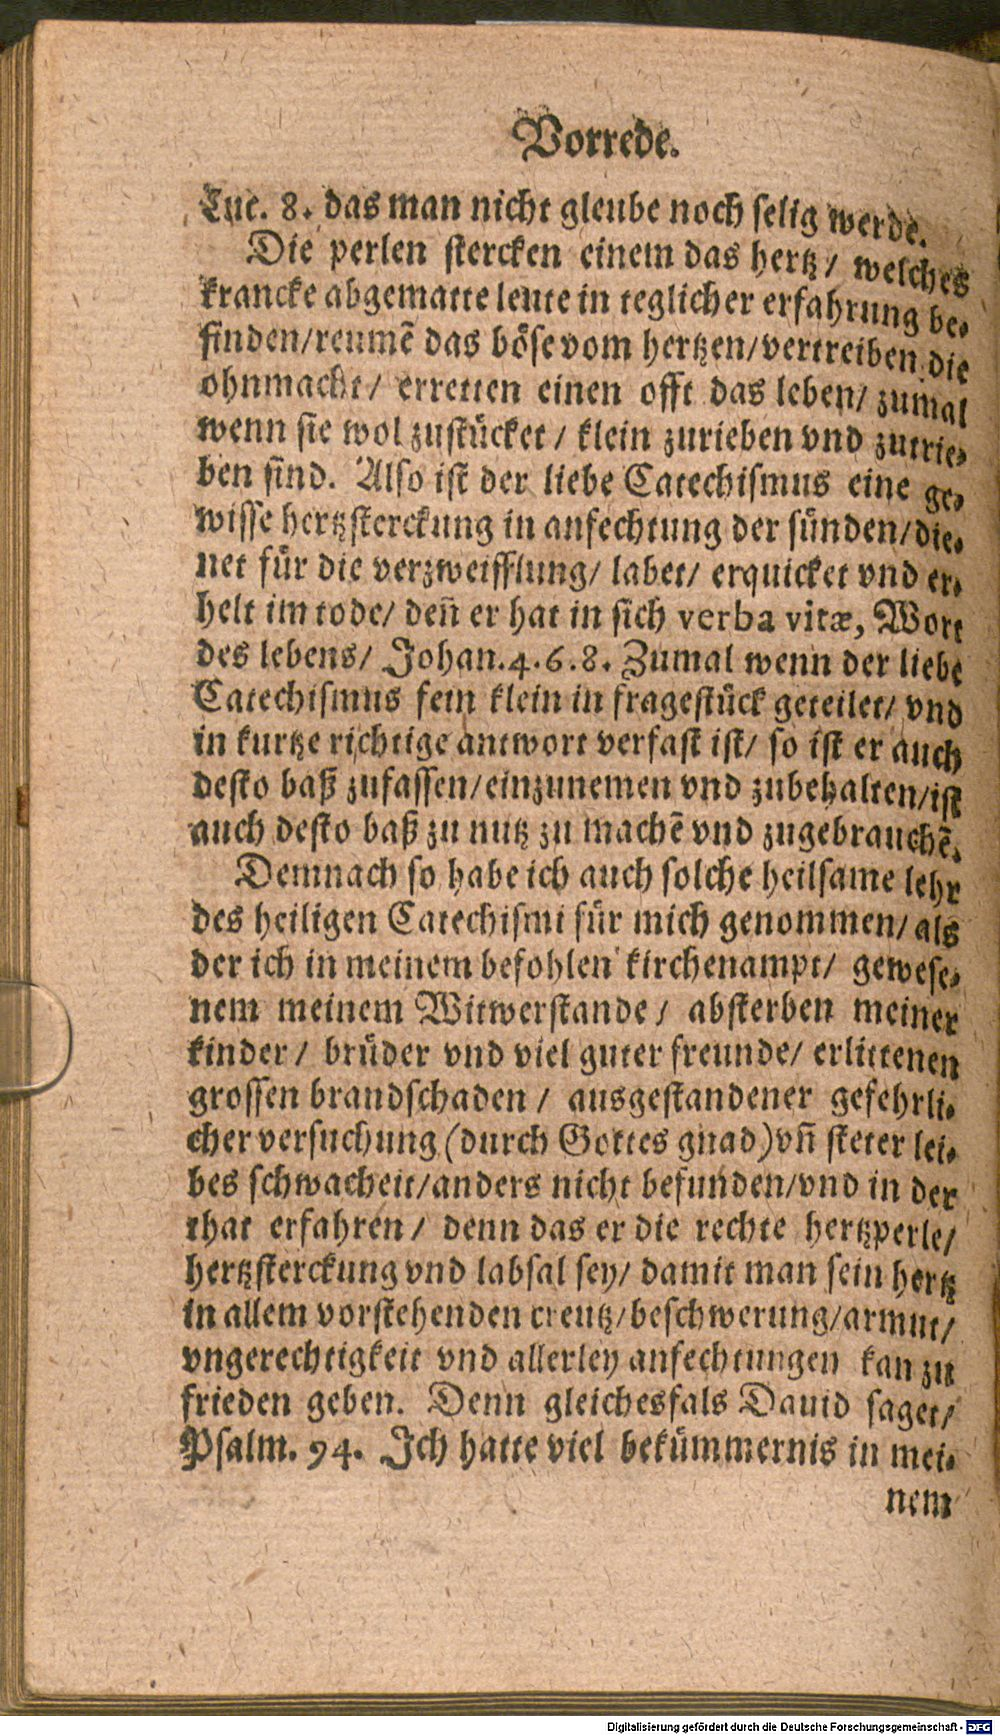 Vorrede.
Luc. 8. das man nicht gleube noch selig werde.
Die perlen stercken einem das hertz / welches
krancke abgematte leute in teglicher erfahrung be-
finden/reumẽ das böse vom hertzen/vertreiben die
ohnmacht/ erretten einen offt das leben/ zumal
wenn sie wol zustücket / klein zurieben vnd zutrie-
ben sind. Also ist der liebe Catechismus eine ge-
wisse hertzsterckung in anfechtung der sünden/die-
net für die verzweifflung/ labet/ erquicket vnd er-
helt im tode/ deñ er hat in sich verba vitæ, Wort
des lebens/ Johan.4.6.8. Zumal wenn der liebe
Catechismus fein klein in fragestück geteilet/ vnd
in kurtze richtige antwort verfast ist/ so ist er auch
desto baß zufassen/einzunemen vnd zubehalten/ist
auch desto baß zu nutz zu machẽ vnd zugebrauchẽ.
Demnach so habe ich auch solche heilsame lehr
des heiligen Catechismi für mich genommen/ als
der ich in meinem befohlen kirchenampt/ gewese-
nem meinem Witwerstande / absterben meiner
kinder / brüder vnd viel guter freunde/ erlittenen
grossen brandschaden / ausgestandener gefehrli-
cher versuchung (durch Gottes gnad) vñ steter lei-
bes schwacheit/anders nicht befunden/vnd in der
that erfahren / denn das er die rechte hertzperle/
hertzsterckung vnd labsal sey/ damit man sein hertz
in allem vorstehenden creutz/beschwerung/armut/
vngerechtigkeit vnd allerley anfechtungen kan zu
frieden geben. Denn gleichesfals Dauid saget/
Psalm. 94. Ich hatte viel bekümmernis in mei-
nem
Digitalisierung gefördert durch die Deutsche Forschungsgemeinschaft - DFG